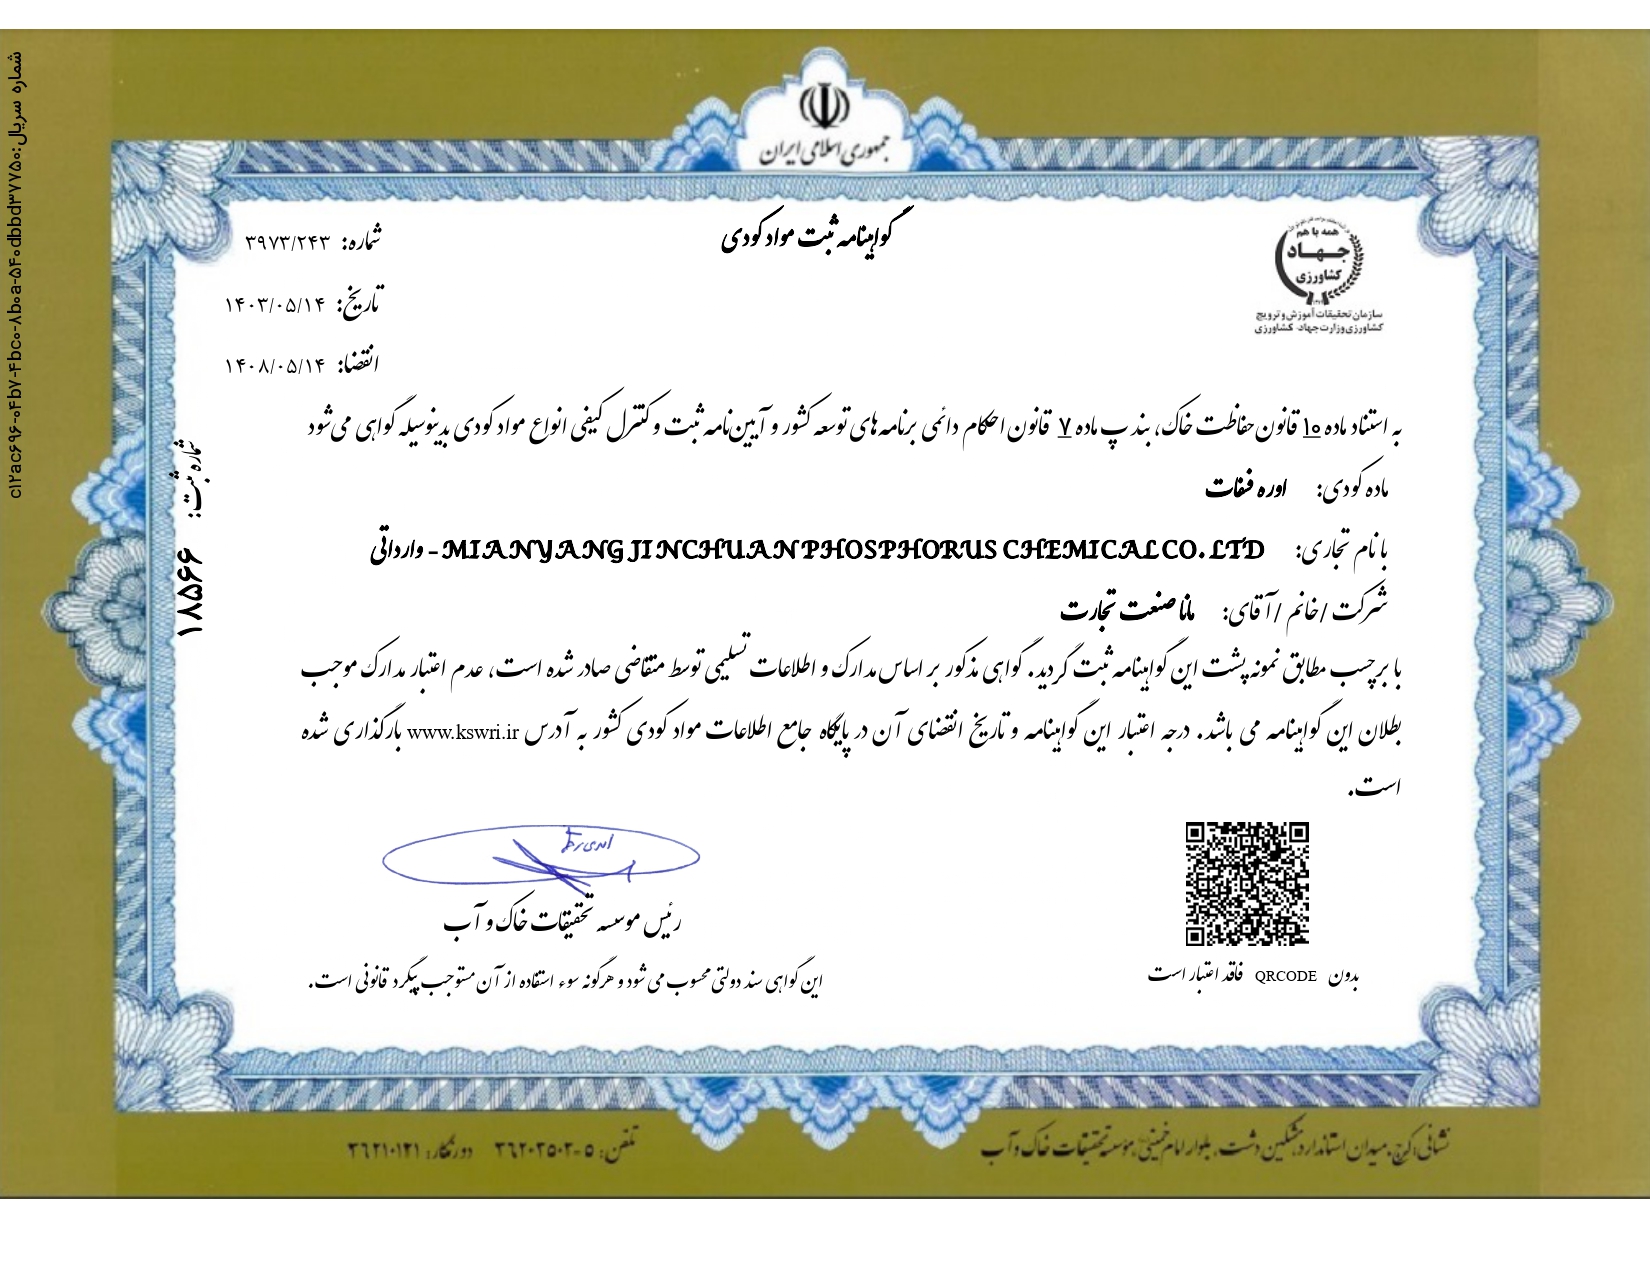 شماره سریال: c12ac696-04b7-4bc0-8b0a-540dbbd37750
جمهوری اسلامی ایران
همه با هم
جهاد
کشاورزی
سازمان تحقیقات آموزش و ترویج
کشاورزی وزارت جهاد کشاورزی
گواهینامه ثبت مواد کودی
شماره: ۳۹۷۳/۲۴۳
تاریخ: ۱۴۰۳/۰۵/۱۴
انقضا: ۱۴۰۸/۰۵/۱۴
شماره ثبت: ۱۸۵۶۶
به استناد ماده ۱۰ قانون حفاظت خاک، بند پ ماده ۷ قانون احکام دائمی برنامه های توسعه کشور و آیین‌نامه ثبت و کنترل کیفی انواع مواد کودی بدینوسیله گواهی می‌شود
ماده کودی: اوره فسفات
با نام تجاری: MIANYANG JINCHUAN PHOSPHORUS CHEMICAL CO. LTD - وارداتی
شرکت / خانم / آقای: مانا صنعت تجارت
با برچسب مطابق نمونه پشت این گواهینامه ثبت گردید. گواهی مذکور بر اساس مدارک و اطلاعات تسلیمی توسط متقاضی صادر شده است، عدم اعتبار مدارک موجب
بطلان این گواهینامه می باشد. درجه اعتبار این گواهینامه و تاریخ انقضای آن در پایگاه جامع اطلاعات مواد کودی کشور به آدرس www.kswri.ir بارگذاری شده
است.
رئیس موسسه تحقیقات خاک و آب
بدون QRCODE فاقد اعتبار است
این گواهی سند دولتی محسوب می شود و هرگونه سوء استفاده از آن مستوجب پیگرد قانونی است.
نشانی: کرج، میدان استاندارد، مشکین دشت، بلوار امام خمینی، مؤسسه تحقیقات خاک و آب
تلفن: ۵-۳۶۲۰۳۵۰۲ دورنگار: ۳۶۲۱۰۱۲۱